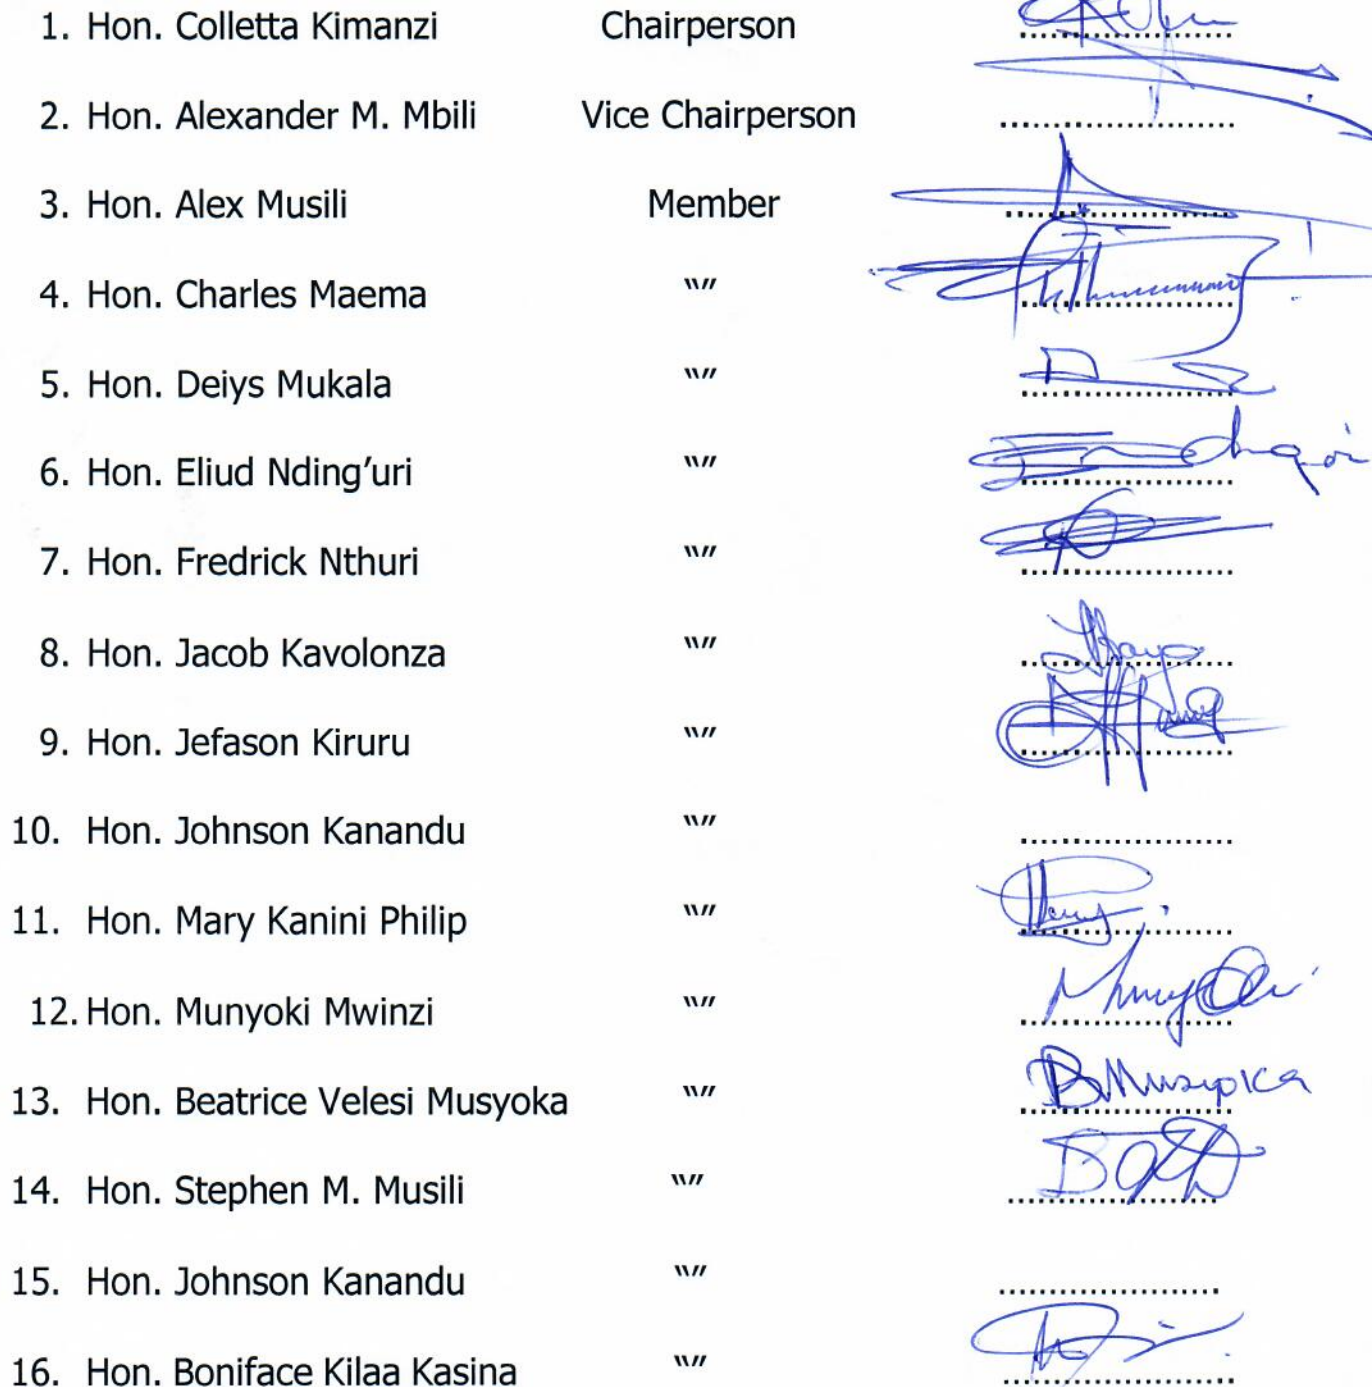 1. Hon. Colletta Kimanzi Chairperson ....................
2. Hon. Alexander M. Mbili Vice Chairperson ......................
3. Hon. Alex Musili Member ......................
4. Hon. Charles Maema "" ....................
5. Hon. Deiys Mukala "" ....................
6. Hon. Eliud Nding'uri "" ....................
7. Hon. Fredrick Nthuri "" ....................
8. Hon. Jacob Kavolonza "" ....................
9. Hon. Jefason Kiruru "" ....................
10. Hon. Johnson Kanandu "" ....................
11. Hon. Mary Kanini Philip "" ....................
12. Hon. Munyoki Mwinzi "" ....................
13. Hon. Beatrice Velesi Musyoka "" BMusyoka ....................
14. Hon. Stephen M. Musili "" ....................
15. Hon. Johnson Kanandu "" .....................
16. Hon. Boniface Kilaa Kasina "" ....................